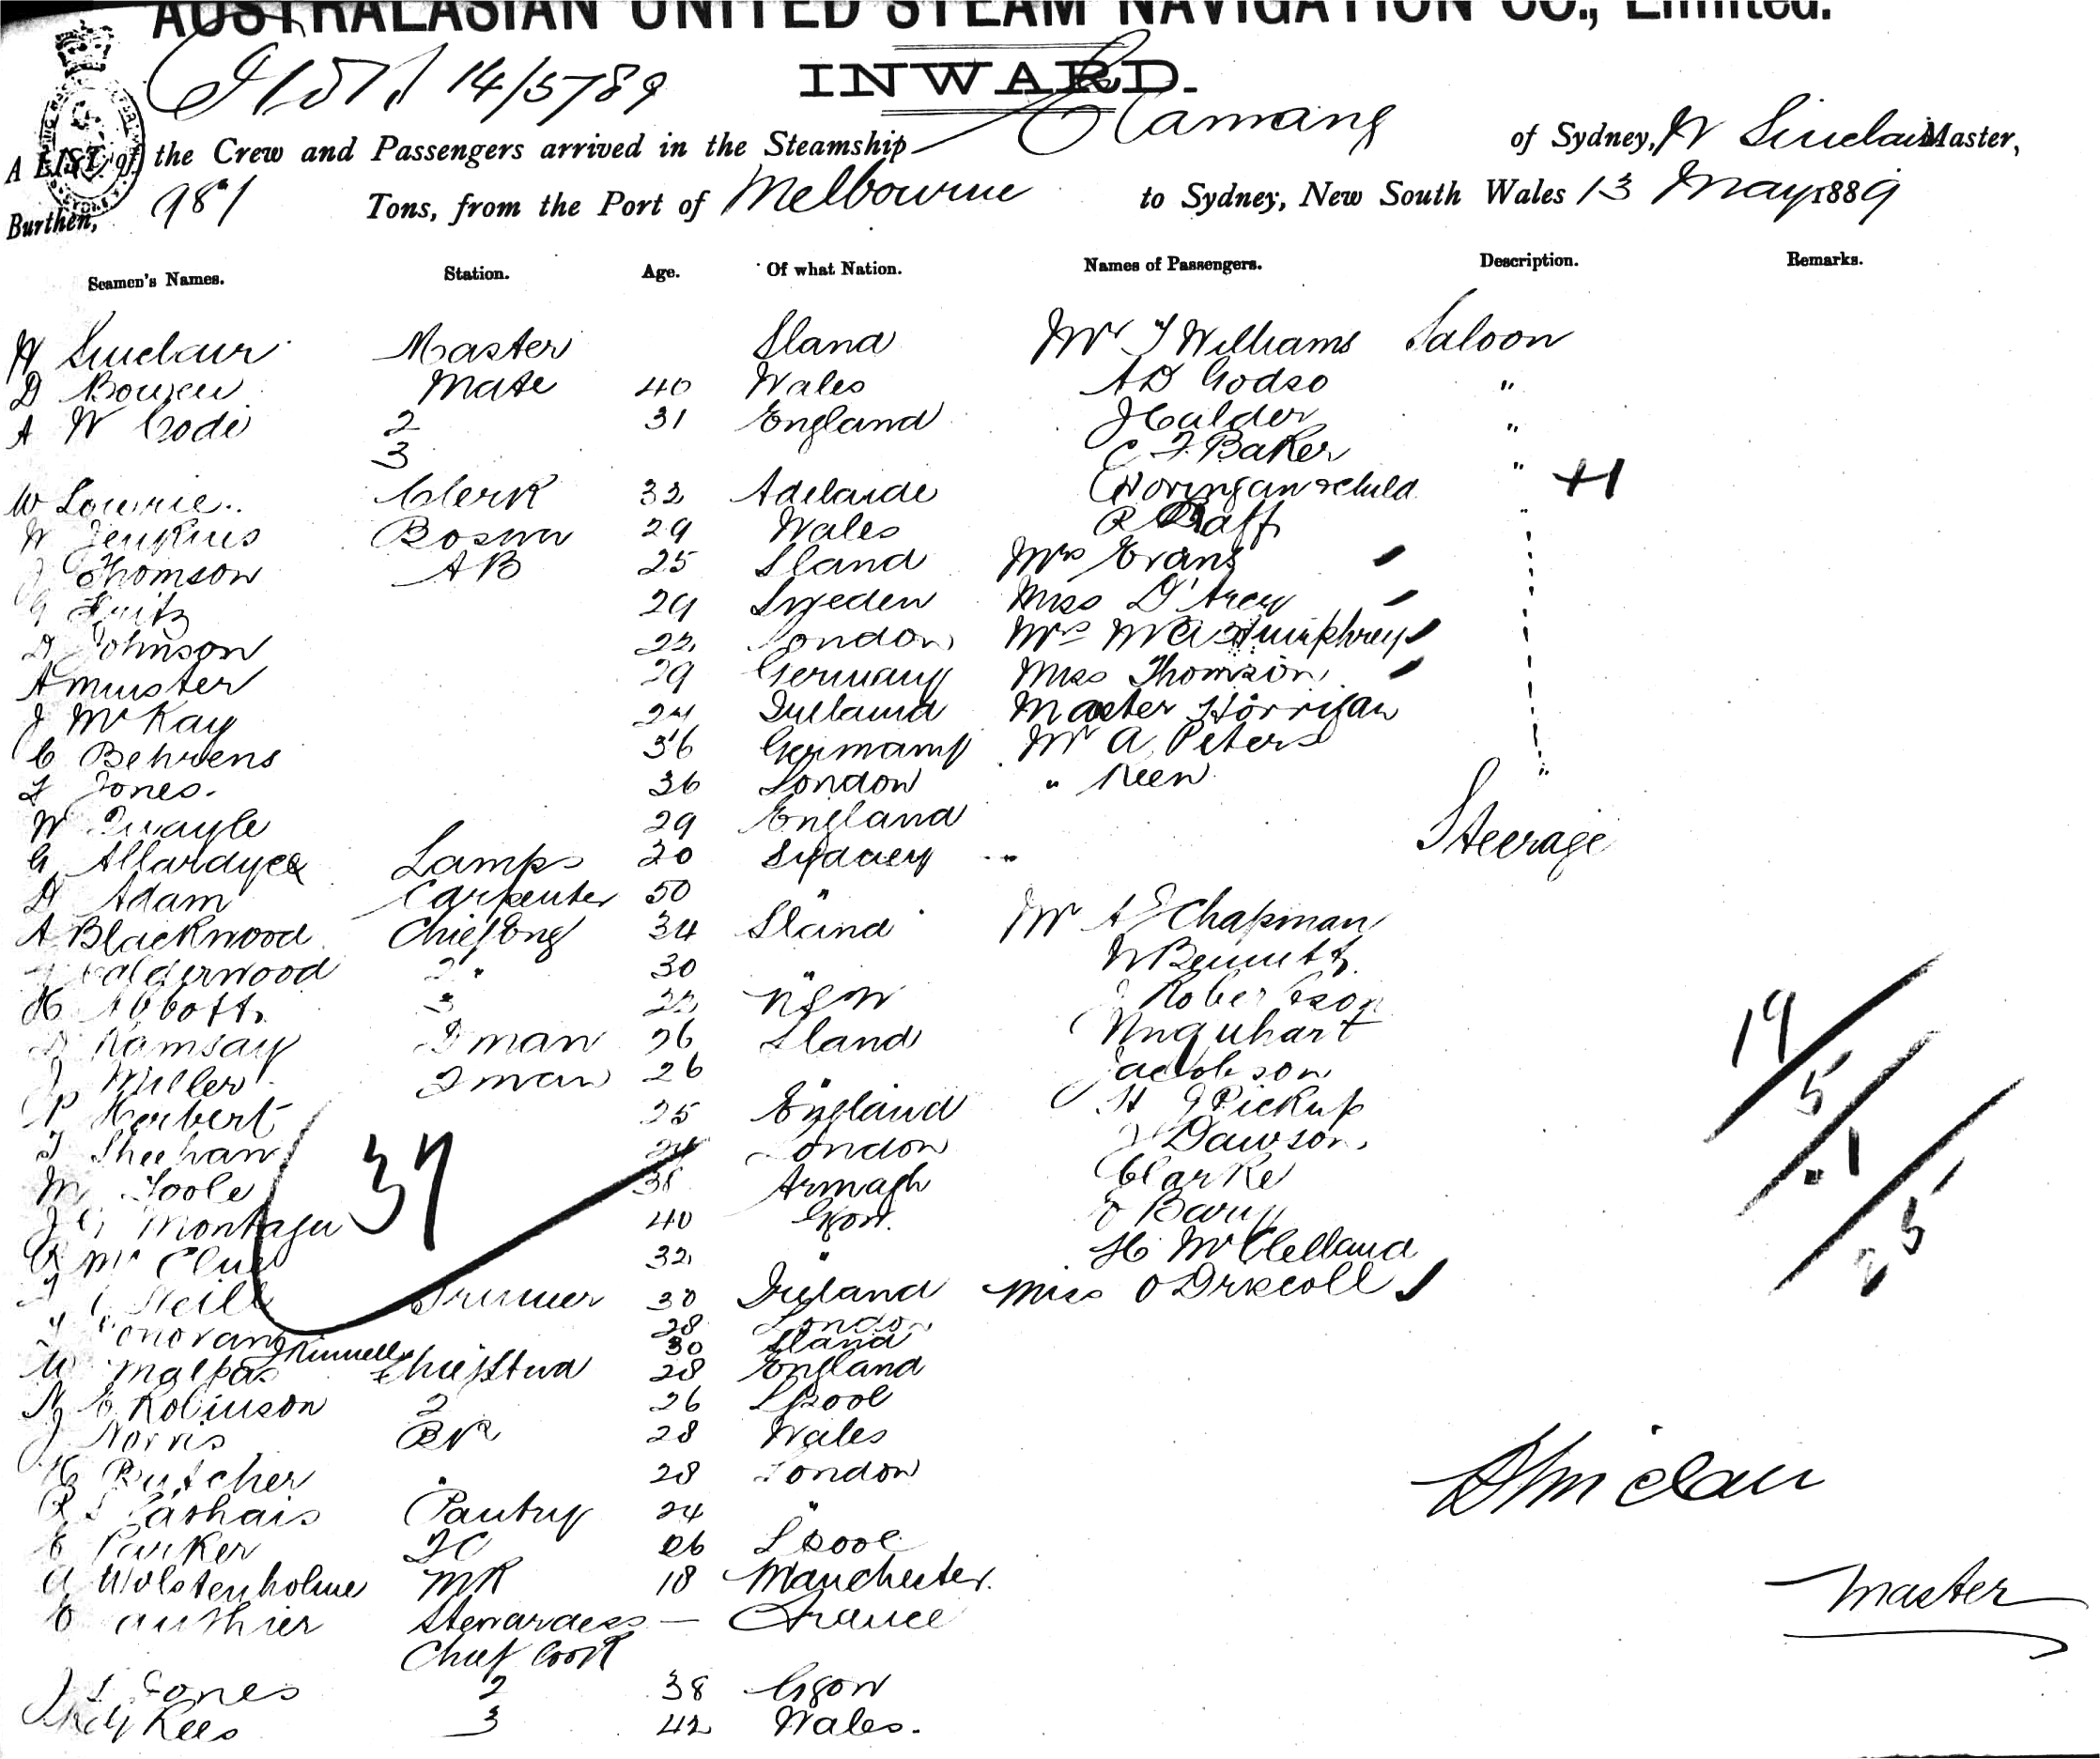 AUSTRALASIAN UNITED STEAM NAVIGATION CO., Limited.
14/5/89
INWARD.
A LIST of the Crew and Passengers arrived in the Steamship Elamang of Sydney, W Sinclair Master,
Burthen, 981 Tons, from the Port of Melbourne to Sydney, New South Wales 13 May 1889
Seamen's Names. Station. Age. Of what Nation. Names of Passengers. Description. Remarks.
W Sinclair Master Sland Mr T Williams Saloon
D Bowen Mate 40 Wales A D Godso "
A W Code 2 31 England J Calder "
3 C F Baker "
W Lowrie Clerk 32 Adelaide Horrigan & child
W Jenkins Boswn 29 Wales R Raff "
J Thomson AB 25 Sland Mrs Evans
G Fritz 29 Sweden Miss D'Arcy
D Johnson 22 London Mrs Humphreys
A Munster 29 Germany Miss Thomson
J McKay 24 Ireland Master Horrigan
C Behrens 36 Germany Mr A Peters
F Jones. 36 London " Keen "
W Quayle 29 England
Steerage
G Allardyce Lamps 20 Sydney
D Adam Carpenter 50 "
A Blackwood Chief Eng 34 Sland Mr A E Chapman
Calderwood 2 " 30 " W Bennett
H Abbott 3 22 NSW J Robertson
D Ramsay Dman 26 Sland Urquhart
J Miller Fman 26 " Jacobson
P Herbert 25 England H J Pickup
T Sheehan London J Dawson
M Toole 38 Armagh Clarke
J G Montagu 40 Gow. Barry
R McClue 32 " H McClelland
37
19/5/1/25
Neill Trimmer 30 Ireland Miss O Driscoll
Donovan 28 London
J Kinnell 30 Sland
W Malpas Chief Stwd 28 England
N E Robinson 2 26 Lpool
J Norris BR 28 Wales
H Butcher " 28 London
R Lashais Pantry 24 "
E Parker FC 26 Lpool
A Wolstenholme MR 18 Manchester.
E Gauthier Stewardess — France
Chief Cook
J L Jones 2 38 Gow
Rees 3 42 Wales.
W Sinclair
Master